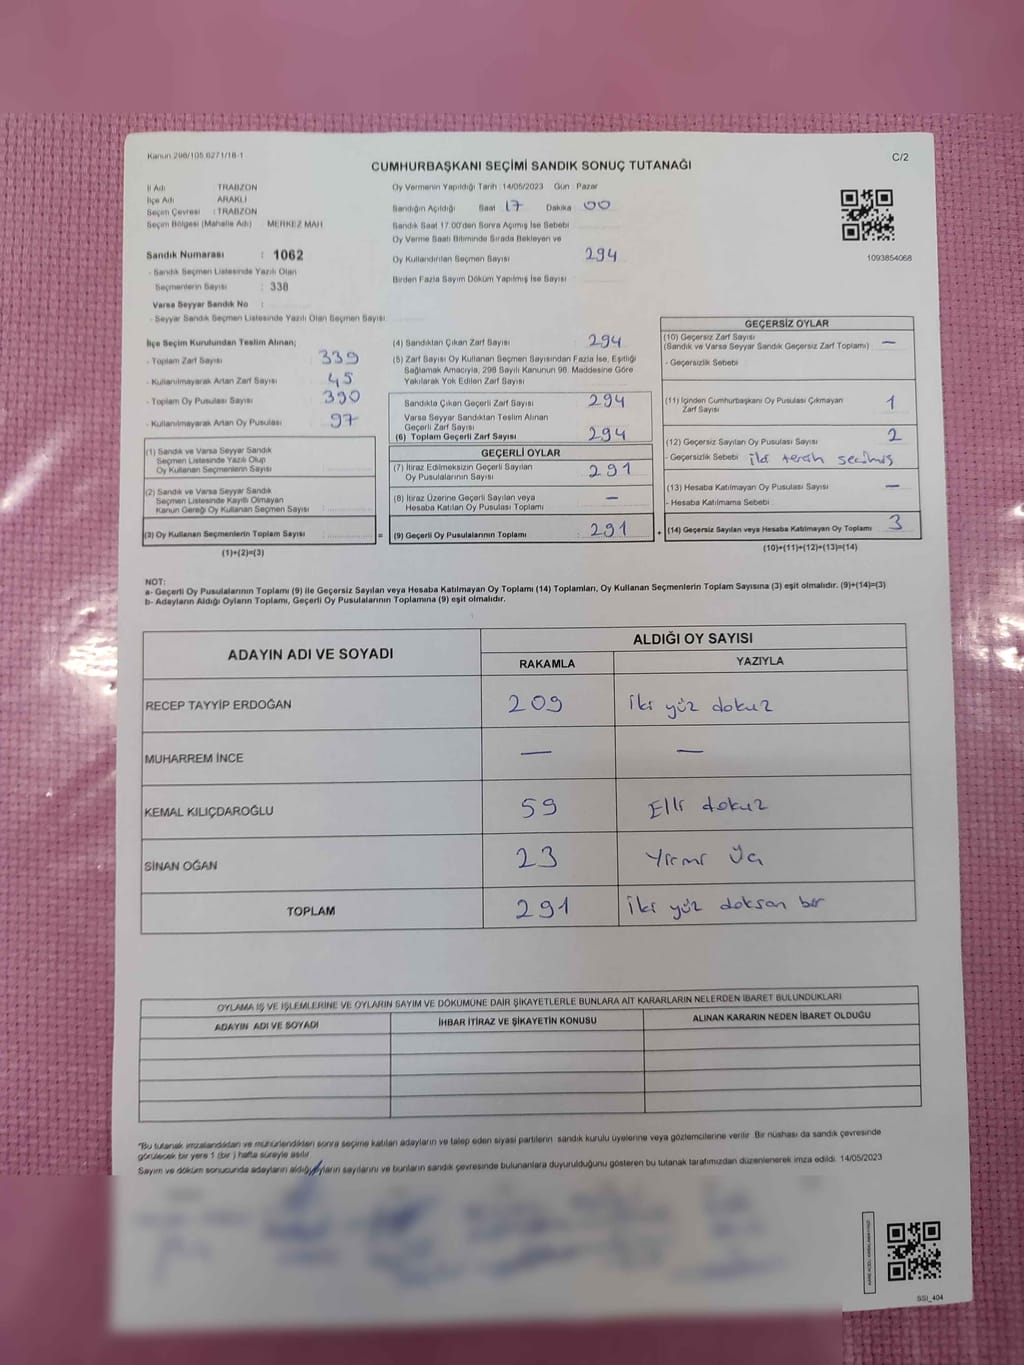 Kanun 298/105,6271/18-1
CUMHURBAŞKANI SEÇİMİ SANDIK SONUÇ TUTANAĞI
C/2
İl Adı : TRABZON
İlçe Adı : ARAKLI
Seçim Çevresi : TRABZON
Seçim Bölgesi (Mahalle Adı) MERKEZ MAH.
Sandık Numarası : 1062
- Sandık Seçmen Listesinde Yazılı Olan
Seçmenlerin Sayısı : 338
Varsa Seyyar Sandık No :
- Seyyar Sandık Seçmen Listesinde Yazılı Olan Seçmen Sayısı:
Oy Vermenin Yapıldığı Tarih : 14/05/2023 Gün : Pazar
Sandığın Açıldığı Saat 17 Dakika 00
Sandık Saat 17:00'den Sonra Açılmış İse Sebebi
Oy Verme Saati Bitiminde Sırada Bekleyen ve
Oy Kullandırılan Seçmen Sayısı 294
Birden Fazla Sayım Döküm Yapılmış İse Sayısı
1093854068
İlçe Seçim Kurulundan Teslim Alınan;
- Toplam Zarf Sayısı : 339
- Kullanılmayarak Artan Zarf Sayısı : 45
- Toplam Oy Pusulası Sayısı : 390
- Kullanılmayarak Artan Oy Pusulası : 97
(1) Sandık ve Varsa Seyyar Sandık
Seçmen Listesinde Yazılı Olup
Oy Kullanan Seçmenlerin Sayısı :
(2) Sandık ve Varsa Seyyar Sandık
Seçmen Listesinde Kayıtlı Olmayan
Kanun Gereği Oy Kullanan Seçmen Sayısı :
(3) Oy Kullanan Seçmenlerin Toplam Sayısı : =
(1)+(2)=(3)
(4) Sandıktan Çıkan Zarf Sayısı : 294
(5) Zarf Sayısı Oy Kullanan Seçmen Sayısından Fazla İse, Eşitliği
Sağlamak Amacıyla, 298 Sayılı Kanunun 98. Maddesine Göre
Yakılarak Yok Edilen Zarf Sayısı
Sandıkta Çıkan Geçerli Zarf Sayısı : 294
Varsa Seyyar Sandıktan Teslim Alınan
Geçerli Zarf Sayısı
(6) Toplam Geçerli Zarf Sayısı : 294
GEÇERLİ OYLAR
(7) İtiraz Edilmeksizin Geçerli Sayılan
Oy Pusulalarının Sayısı : 291
(8) İtiraz Üzerine Geçerli Sayılan veya
Hesaba Katılan Oy Pusulası Toplamı : —
(9) Geçerli Oy Pusulalarının Toplamı : 291 +
GEÇERSİZ OYLAR
(10) Geçersiz Zarf Sayısı
(Sandık ve Varsa Seyyar Sandık Geçersiz Zarf Toplamı) —
- Geçersizlik Sebebi
(11) İçinden Cumhurbaşkanı Oy Pusulası Çıkmayan
Zarf Sayısı 1
(12) Geçersiz Sayılan Oy Pusulası Sayısı 2
- Geçersizlik Sebebi iki tercih seçilmiş
(13) Hesaba Katılmayan Oy Pusulası Sayısı —
- Hesaba Katılmama Sebebi
(14) Geçersiz Sayılan veya Hesaba Katılmayan Oy Toplamı 3
(10)+(11)+(12)+(13)=(14)
NOT:
a- Geçerli Oy Pusulalarının Toplamı (9) ile Geçersiz Sayılan veya Hesaba Katılmayan Oy Toplamı (14) Toplamları, Oy Kullanan Seçmenlerin Toplam Sayısına (3) eşit olmalıdır. (9)+(14)=(3)
b- Adayların Aldığı Oyların Toplamı, Geçerli Oy Pusulalarının Toplamına (9) eşit olmalıdır.
ADAYIN ADI VE SOYADI
ALDIĞI OY SAYISI
RAKAMLA YAZIYLA
RECEP TAYYİP ERDOĞAN 209 iki yüz dokuz
MUHARREM İNCE — —
KEMAL KILIÇDAROĞLU 59 Elli dokuz
SİNAN OĞAN 23 Yirmi Üç
TOPLAM 291 iki yüz doksan bir
OYLAMA İŞ VE İŞLEMLERİNE VE OYLARIN SAYIM VE DÖKÜMÜNE DAİR ŞİKAYETLERLE BUNLARA AİT KARARLARIN NELERDEN İBARET BULUNDUKLARI
ADAYIN ADI VE SOYADI İHBAR İTİRAZ VE ŞİKAYETİN KONUSU ALINAN KARARIN NEDEN İBARET OLDUĞU
*Bu tutanak imzalandıktan ve mühürlendikten sonra seçime katılan adayların ve talep eden siyasi partilerin sandık kurulu üyelerine veya gözlemcilerine verilir. Bir nüshası da sandık çevresinde
görülecek bir yere 1 (bir) hafta süreyle asılır
Sayım ve döküm sonucunda adayların aldığı oyların sayılarını ve bunların sandık çevresinde bulunanlara duyurulduğunu gösteren bu tutanak tarafımızdan düzenlenerek imza edildi. 14/05/2023
SSI_404